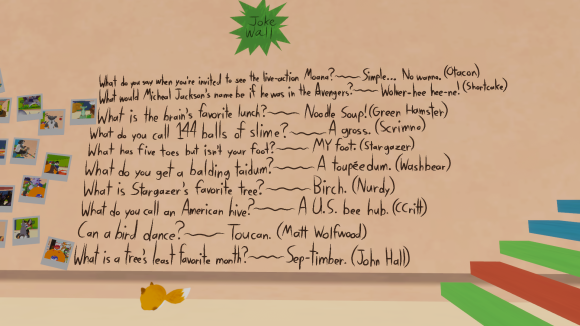 Joke
Wall
What do you say when you're invited to see the live-action Moana? Simple... No wanna. (Otacon)
What would Micheal Jackson's name be if he was in the Avengers? Woher-hee hee-ne! (Shortcake)
What is the brain's favorite lunch? Noodle Soup! (Green Hamster)
What do you call 144 balls of slime? A gross. (Scrimno)
What has five toes but isn't your foot? MY foot. (Stargazer)
What do you get a balding taidum? A toupéedum. (Washbear)
What is Stargazer's favorite tree? Birch. (Nurdy)
What do you call an American hive? A U.S. bee hub. (CCritt)
Can a bird dance? Toucan. (Matt Wolfwood)
What is a tree's least favorite month? Sep-timber. (John Hall)